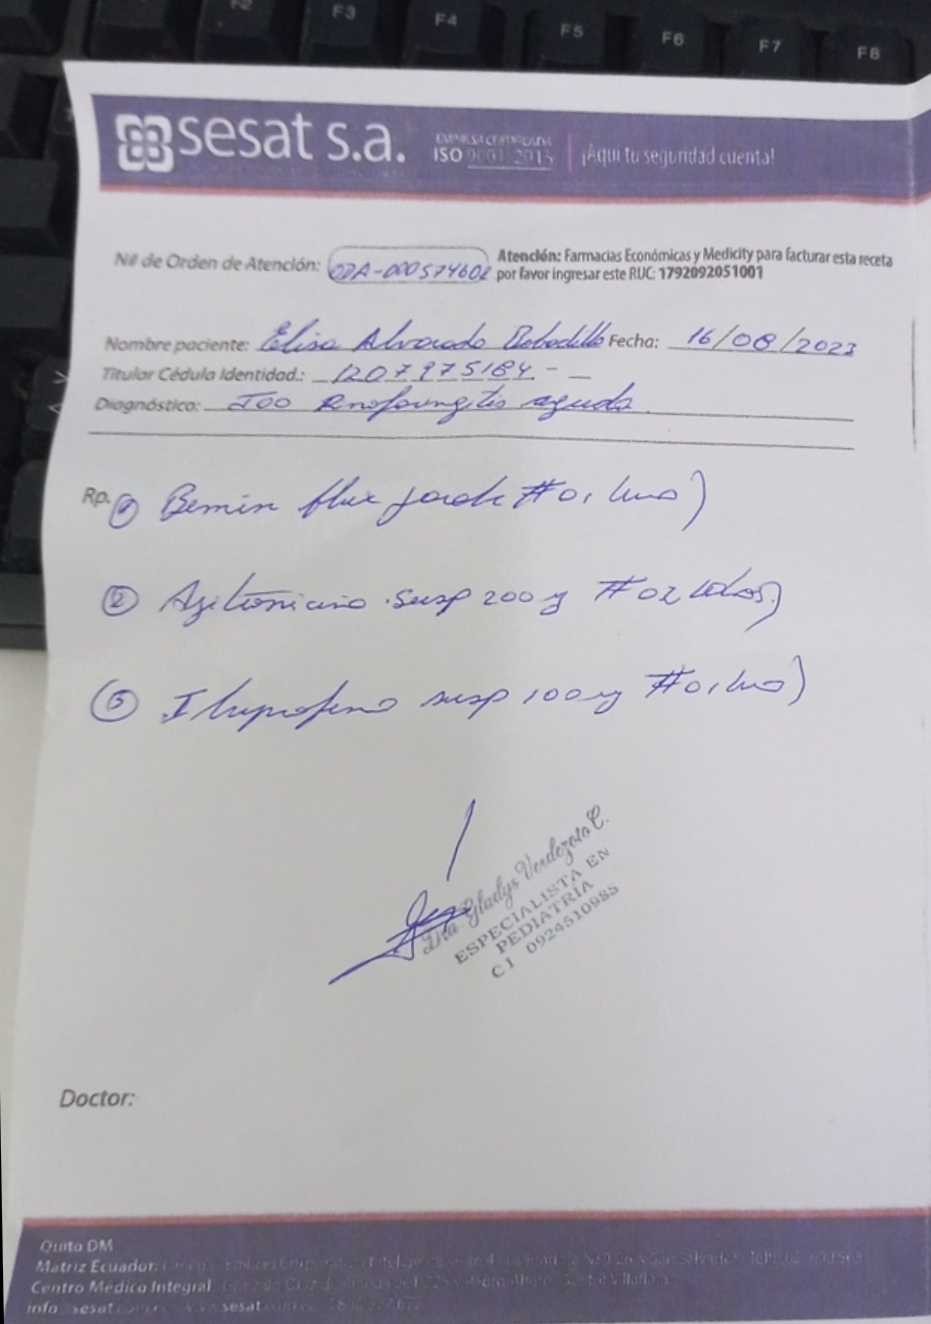 F3 F4 F5 F6 F7 F8
sesat s.a. ISO 9001 2015 ¡Aquí tu seguridad cuenta!
Nº de Orden de Atención: ODA-000574602
Atención: Farmacias Económicas y Medicity para facturar esta receta
por favor ingresar este RUC: 1792092051001
Nombre paciente: Elisa Alvarado Bobadilla Fecha: 16/08/2023
Titular Cédula Identidad.: 1207975184
Diagnóstico: J00 Rinofaringitis aguda
Rp. ① Bemin flux jarabe #01 (uno)
② Azitromicina susp 200 mg #02 (dos)
③ Ibuprofeno susp 100 mg #01 (uno)
Dra Gladys Verdezoto C.
ESPECIALISTA EN
PEDIATRÍA
CI 0924510985
Doctor:
Quito DM
Matriz Ecuador:
Centro Médico Integral
info sesat sesat